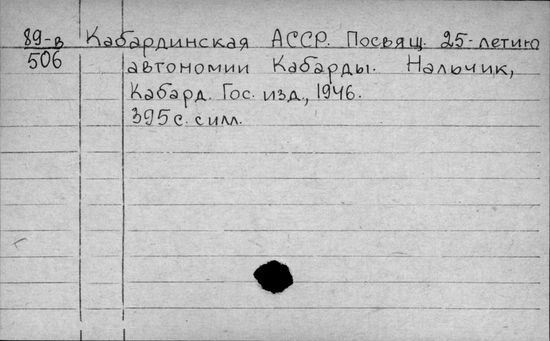 89-в Кабардинская АССР. Посвящ. 25-летию
506 автономии Кабарды. Нальчик,
Кабард. Гос. изд., 1946.
395 с. с илл.